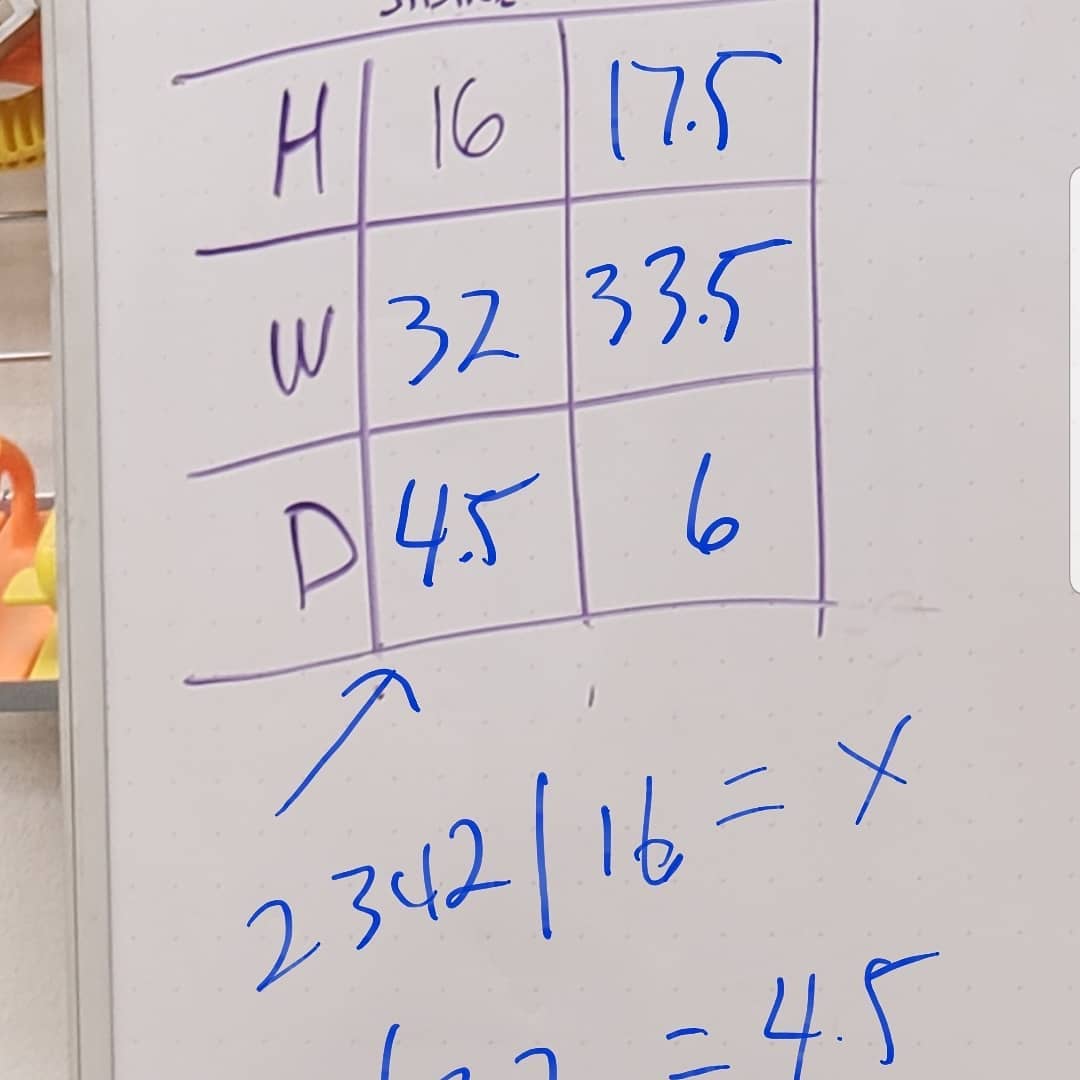 H 16 17.5
W 32 33.5
D 4.5 6
2342/16 = x
= 4.5